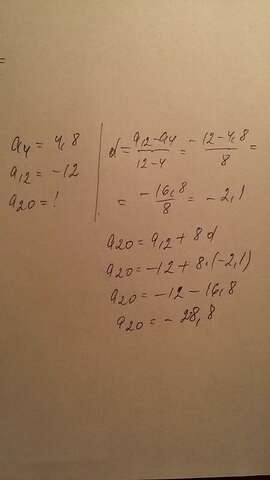 a4 = 4,8
a12 = -12
a20 = !
d = a12-a4 / 12-4 = -12-4,8 / 8 =
= -16,8 / 8 = -2,1
a20 = a12 + 8d
a20 = -12 + 8·(-2,1)
a20 = -12 - 16,8
a20 = -28,8